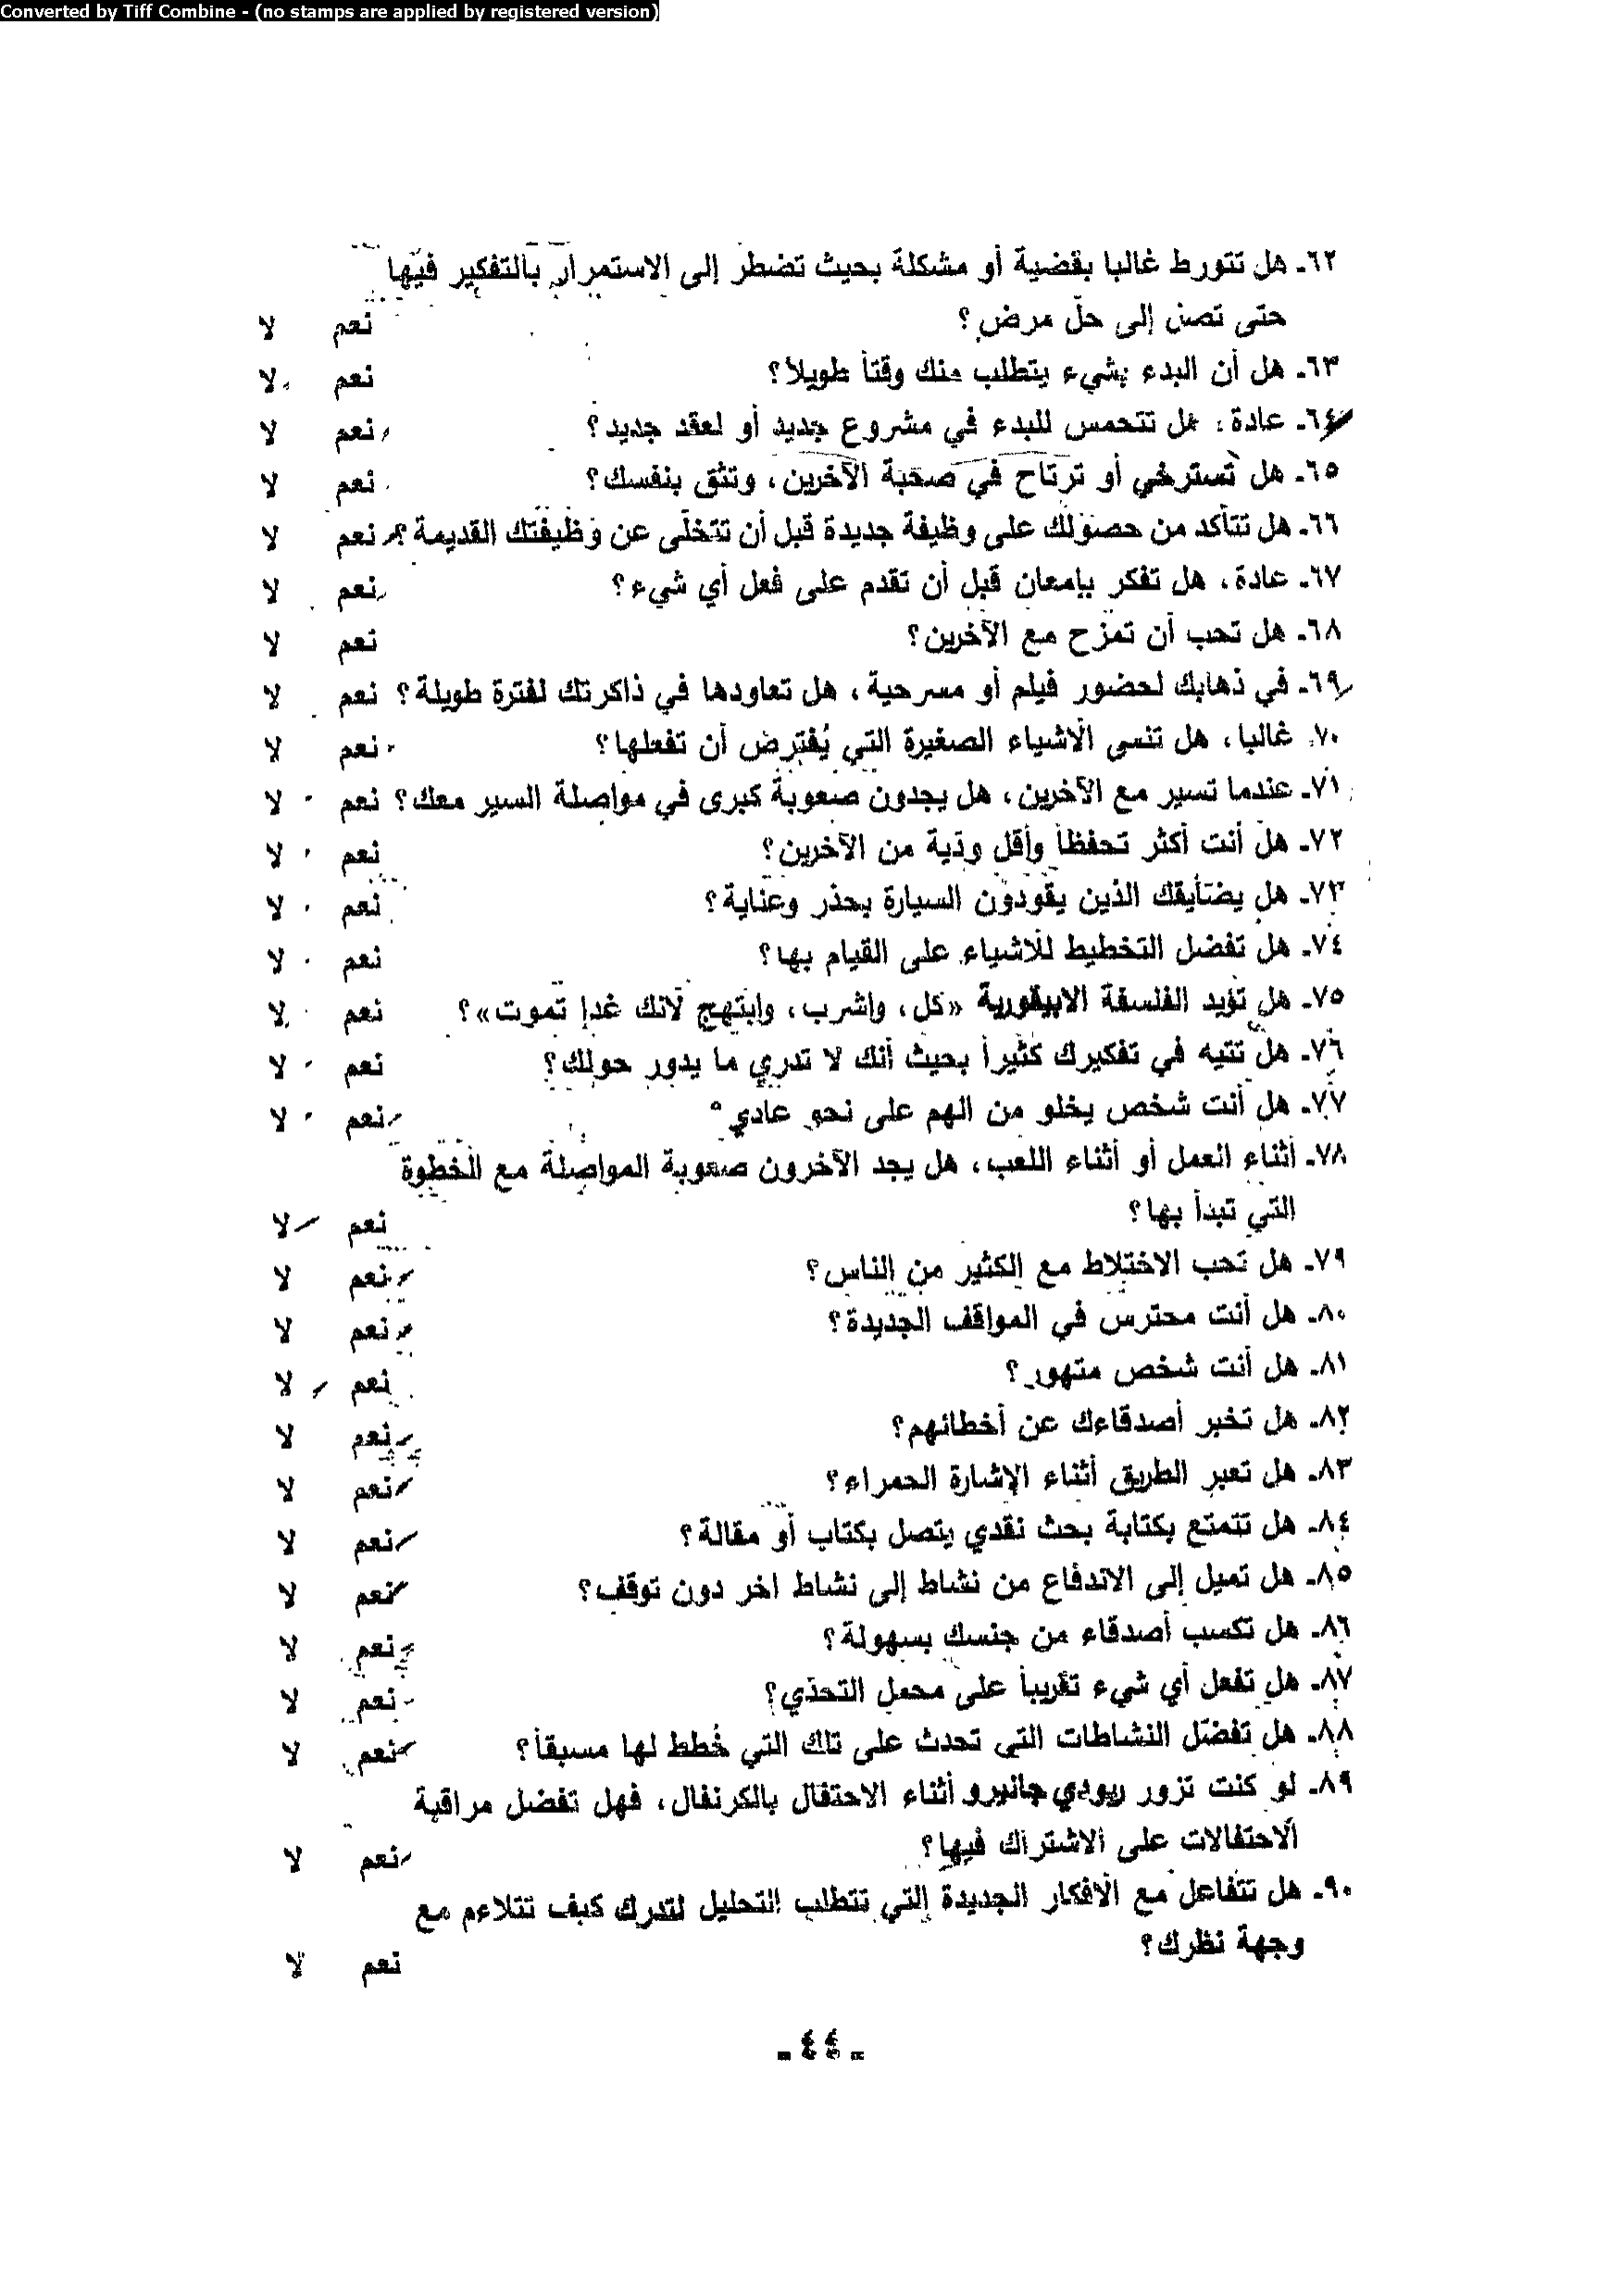 Converted by Tiff Combine - (no stamps are applied by registered version)
٦٢ـ هل تتورط غالبا بقضية أو مشكلة بحيث تضطر إلى الاستمرار بالتفكير فيها
حتى تصل إلى حلّ مرضٍ؟ نعم لا
٦٣ـ هل أن البدء بشيء يتطلب منك وقتاً طويلاً؟ نعم لا
٦٤ـ عادة، هل تتحمس للبدء في مشروع جديد أو لعقد جديد؟ نعم لا
٦٥ـ هل تسترخي أو ترتاح في صحبة الآخرين، وتثق بنفسك؟ نعم لا
٦٦ـ هل تتأكد من حصولك على وظيفة جديدة قبل أن تتخلّى عن وظيفتك القديمة؟ نعم لا
٦٧ـ عادة، هل تفكر بإمعان قبل أن تقدم على فعل أي شيء؟ نعم لا
٦٨ـ هل تحب أن تمزح مع الآخرين؟ نعم لا
٦٩ـ في ذهابك لحضور فيلم أو مسرحية، هل تعاودها في ذاكرتك لفترة طويلة؟ نعم لا
٧٠ـ غالبا، هل تنسى الأشياء الصغيرة التي يُفترض أن تفعلها؟ نعم لا
٧١ـ عندما تسير مع الآخرين، هل يجدون صعوبة كبرى في مواصلة السير معك؟ نعم لا
٧٢ـ هل أنت أكثر تحفظاً وأقل ودّية من الآخرين؟ نعم لا
٧٣ـ هل يضايقك الذين يقودون السيارة بحذر وعناية؟ نعم لا
٧٤ـ هل تفضل التخطيط للأشياء على القيام بها؟ نعم لا
٧٥ـ هل تؤيد الفلسفة الابيقورية «كل، واشرب، وابتهج لأنك غدا تموت»؟ نعم لا
٧٦ـ هل تتيه في تفكيرك كثيراً بحيث أنك لا تدري ما يدور حولك؟ نعم لا
٧٧ـ هل أنت شخص يخلو من الهم على نحو عادي؟ نعم لا
٧٨ـ أثناء العمل أو أثناء اللعب، هل يجد الآخرون صعوبة المواصلة مع الخطوة
التي تبدأ بها؟ نعم لا
٧٩ـ هل تحب الاختلاط مع الكثير من الناس؟ نعم لا
٨٠ـ هل أنت محترس في المواقف الجديدة؟ نعم لا
٨١ـ هل أنت شخص متهور؟ نعم لا
٨٢ـ هل تخبر أصدقاءك عن أخطائهم؟ نعم لا
٨٣ـ هل تعبر الطريق أثناء الإشارة الحمراء؟ نعم لا
٨٤ـ هل تتمتع بكتابة بحث نقدي يتصل بكتاب أو مقالة؟ نعم لا
٨٥ـ هل تميل إلى الاندفاع من نشاط إلى نشاط اخر دون توقف؟ نعم لا
٨٦ـ هل تكسب أصدقاء من جنسك بسهولة؟ نعم لا
٨٧ـ هل تفعل أي شيء تقريباً على محمل التحدّي؟ نعم لا
٨٨ـ هل تفضّل النشاطات التي تحدث على تلك التي خُطط لها مسبقاً؟ نعم لا
٨٩ـ لو كنت تزور ريودي جانيرو أثناء الاحتفال بالكرنفال، فهل تفضل مراقبة
الاحتفالات على الاشتراك فيها؟ نعم لا
٩٠ـ هل تتفاعل مع الأفكار الجديدة التي تتطلب التحليل لتدرك كيف تتلاءم مع
وجهة نظرك؟ نعم لا
ـ ٤٤ ـ